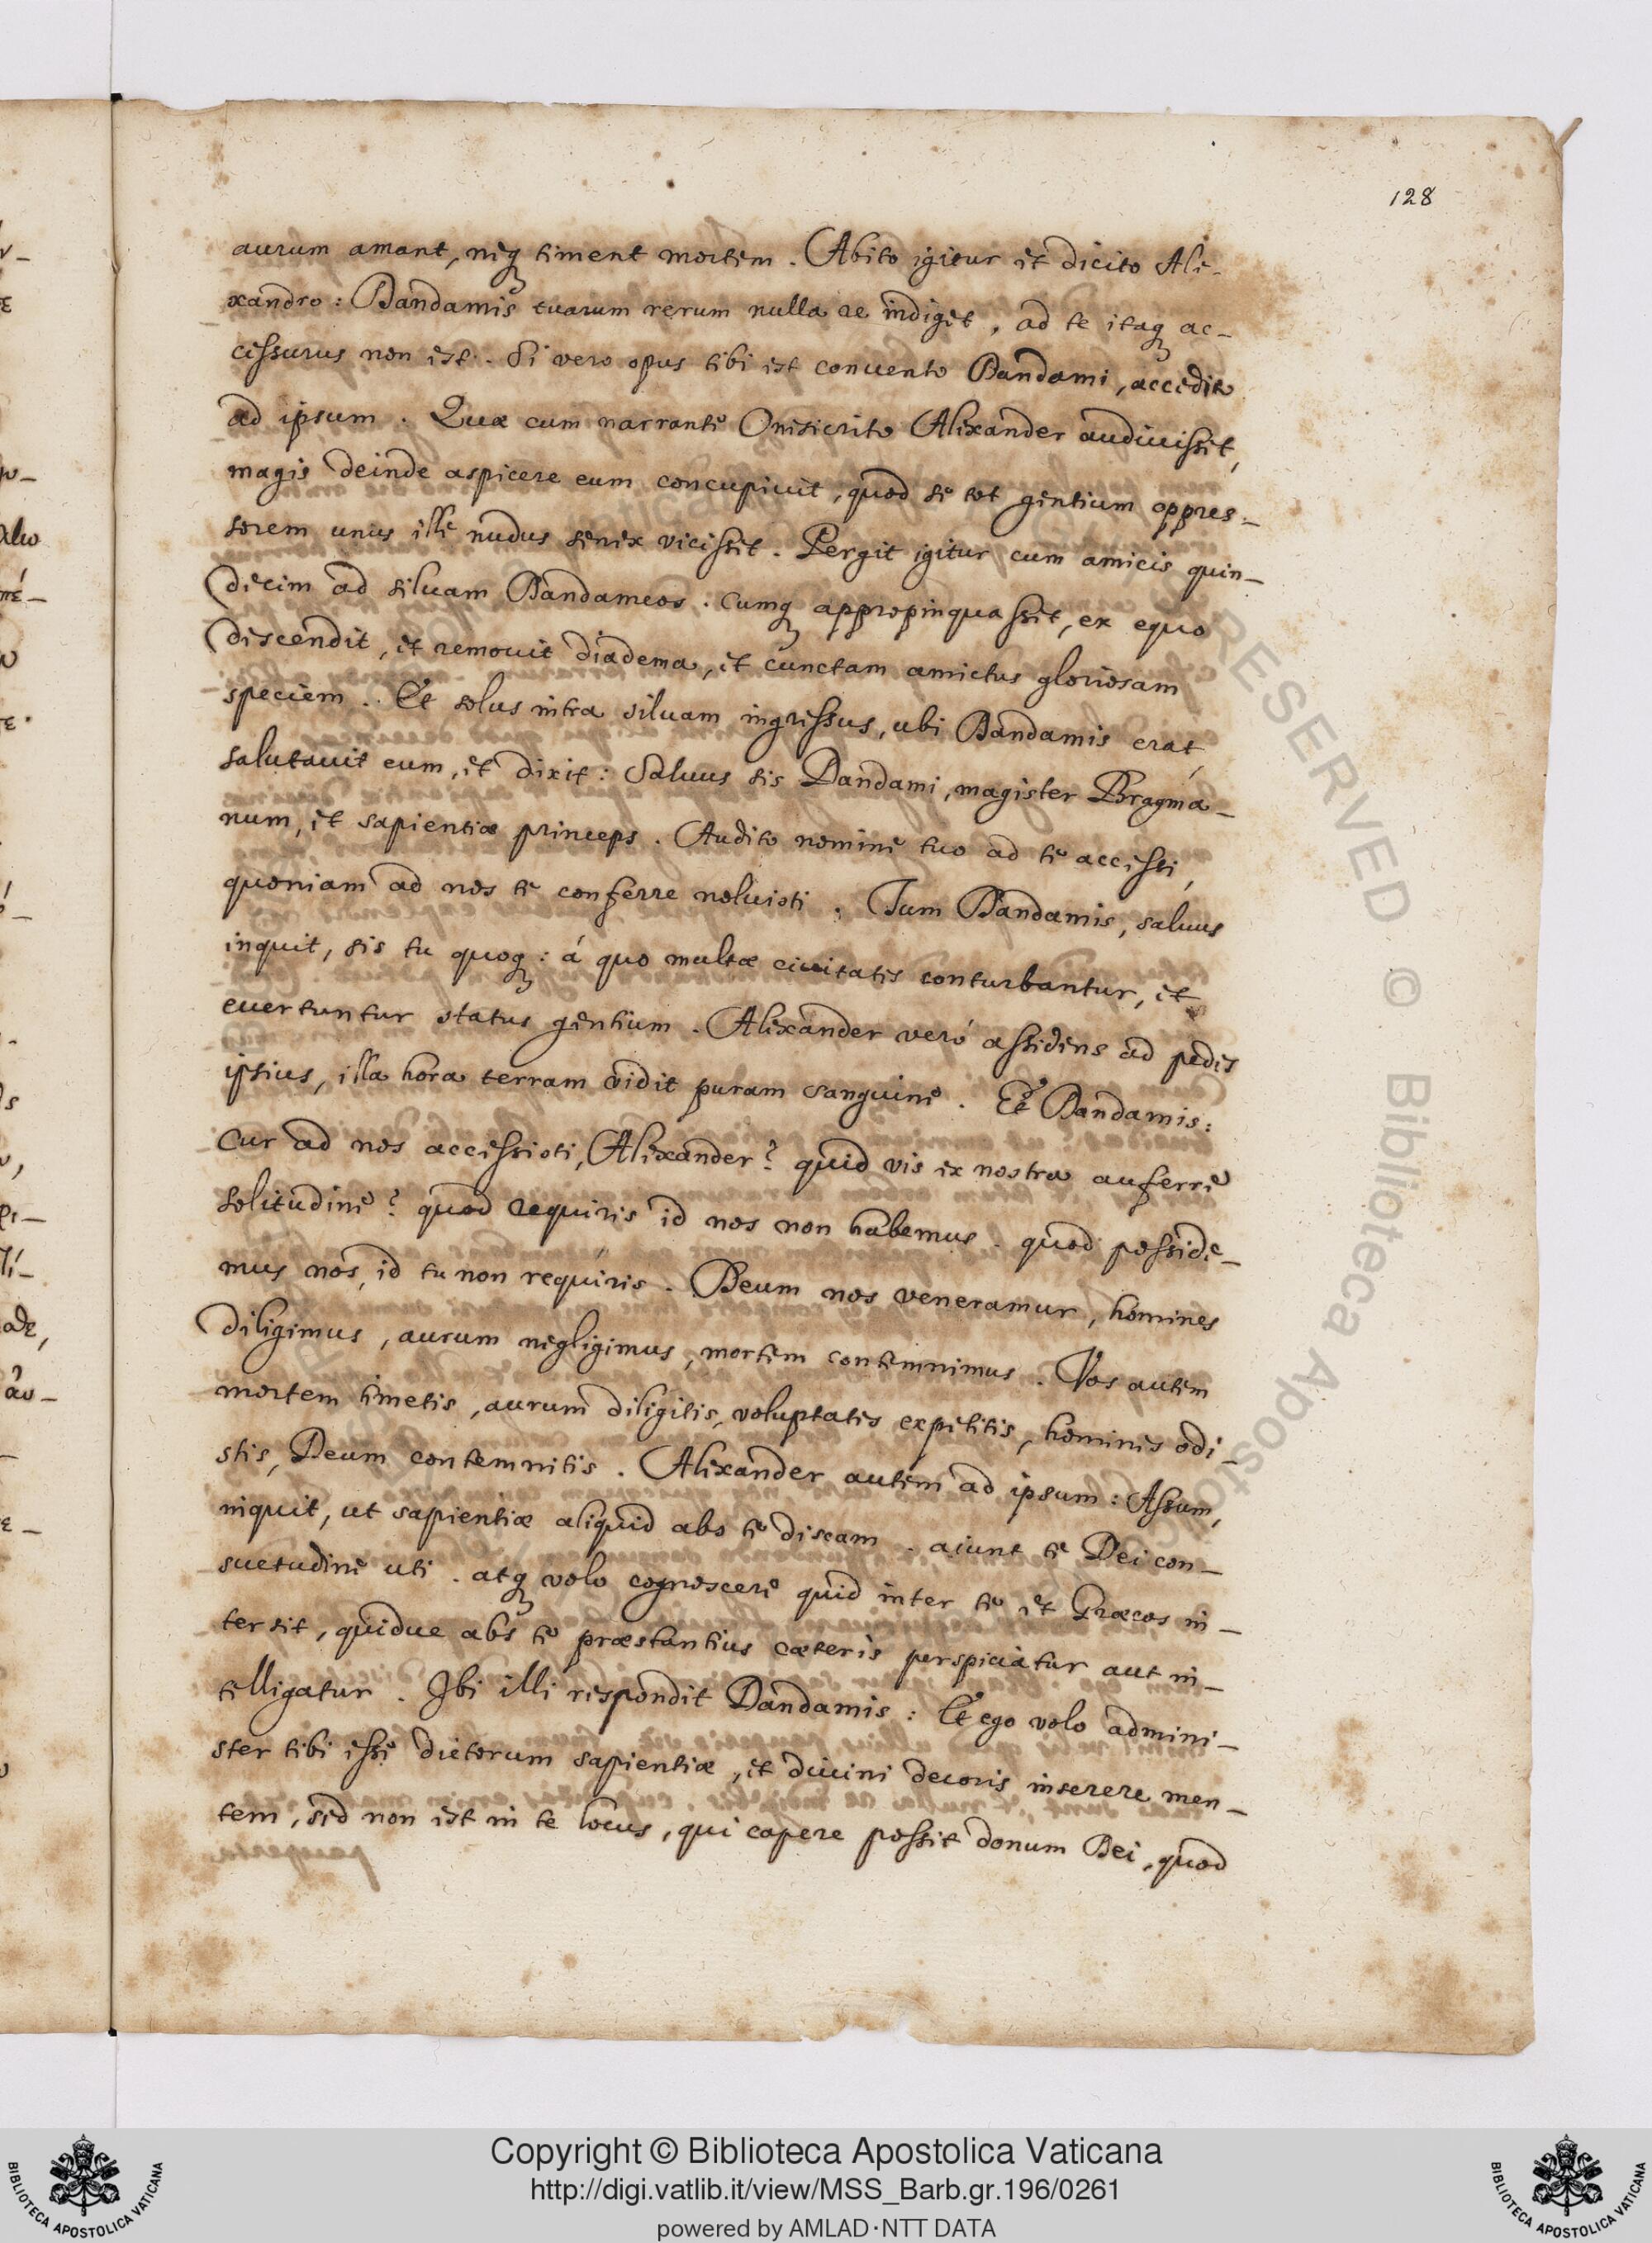 128
aurum amant, neq timent mortem. Abito igitur et dicito Ale-
xandro: Dandamis tuarum rerum nulla re indiget, ad te itaq ac-
cessurus non est. Si vero opus tibi est conuento Dandami, accedito
ad ipsum. Quæ cum narrante Onesicrito Alexander audiuisset,
magis deinde aspicere eum concupiuit, quod se tot gentium oppres-
sorem unus ille nudus senex vicisset. Pergit igitur cum amicis quin-
decim ad siluam Dandameos. Cumq appropinquasset, ex equo
descendit, et remouit diadema, et cunctam amictus gloriosam
speciem. Et solus intra siluam ingressus, ubi Dandamis erat,
salutauit eum, et dixit: Saluus sis Dandami, magister Bragma-
num, et sapientiæ princeps. Audito nomine tuo ad te accessi,
quoniam ad nos te conferre noluisti. Tum Dandamis, saluus
inquit, sis tu quoq: á quo multæ ciuitates conturbantur, et
euertuntur status gentium. Alexander veró assidens ad pedes
ipsius, illa hora terram vidit puram sanguine. Et Dandamis:
Cur ad nos accessisti, Alexander? quid vis ex nostra auferre
solitudine? quod requiris id nos non habemus. quod posside-
mus nos, id tu non requiris. Deum nos veneramur, homines
diligimus, aurum negligimus, mortem contemnimus. Vos autem
mortem timetis, aurum diligitis, voluptates expetitis, homines odi-
stis, Deum contemnitis. Alexander autem ad ipsum: Assum,
inquit, ut sapientiæ aliquid abs te discam. aiunt te Dei con-
suetudine uti. atq volo cognoscere quid inter te et Græcos in-
tersit, quidue abs te præstantius cæteris perspiciatur aut in-
telligatur. Ibi illi respondit Dandamis: Et ego volo admini-
ster tibi esse dictorum sapientiæ, et diuini decoris inserere men-
tem, sed non est in te locus, qui capere possit donum Dei, quod
Copyright © Biblioteca Apostolica Vaticana
http://digi.vatlib.it/view/MSS_Barb.gr.196/0261
powered by AMLAD·NTT DATA
BIBLIOTECA APOSTOLICA VATICANA
BIBLIOTECA APOSTOLICA VATICANA